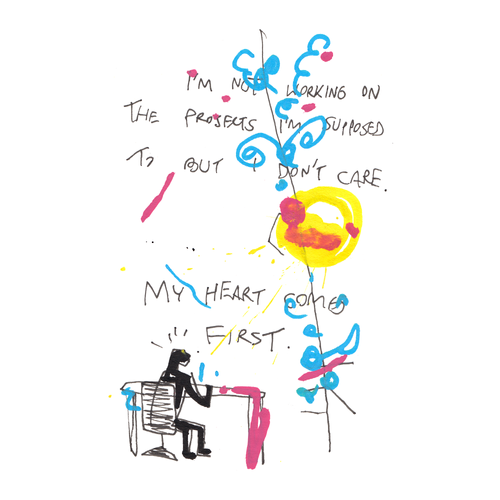 I'M NOT WORKING ON
THE PROJECTS I'M SUPPOSED
TO BUT I DON'T CARE.
MY HEART COMES
FIRST.